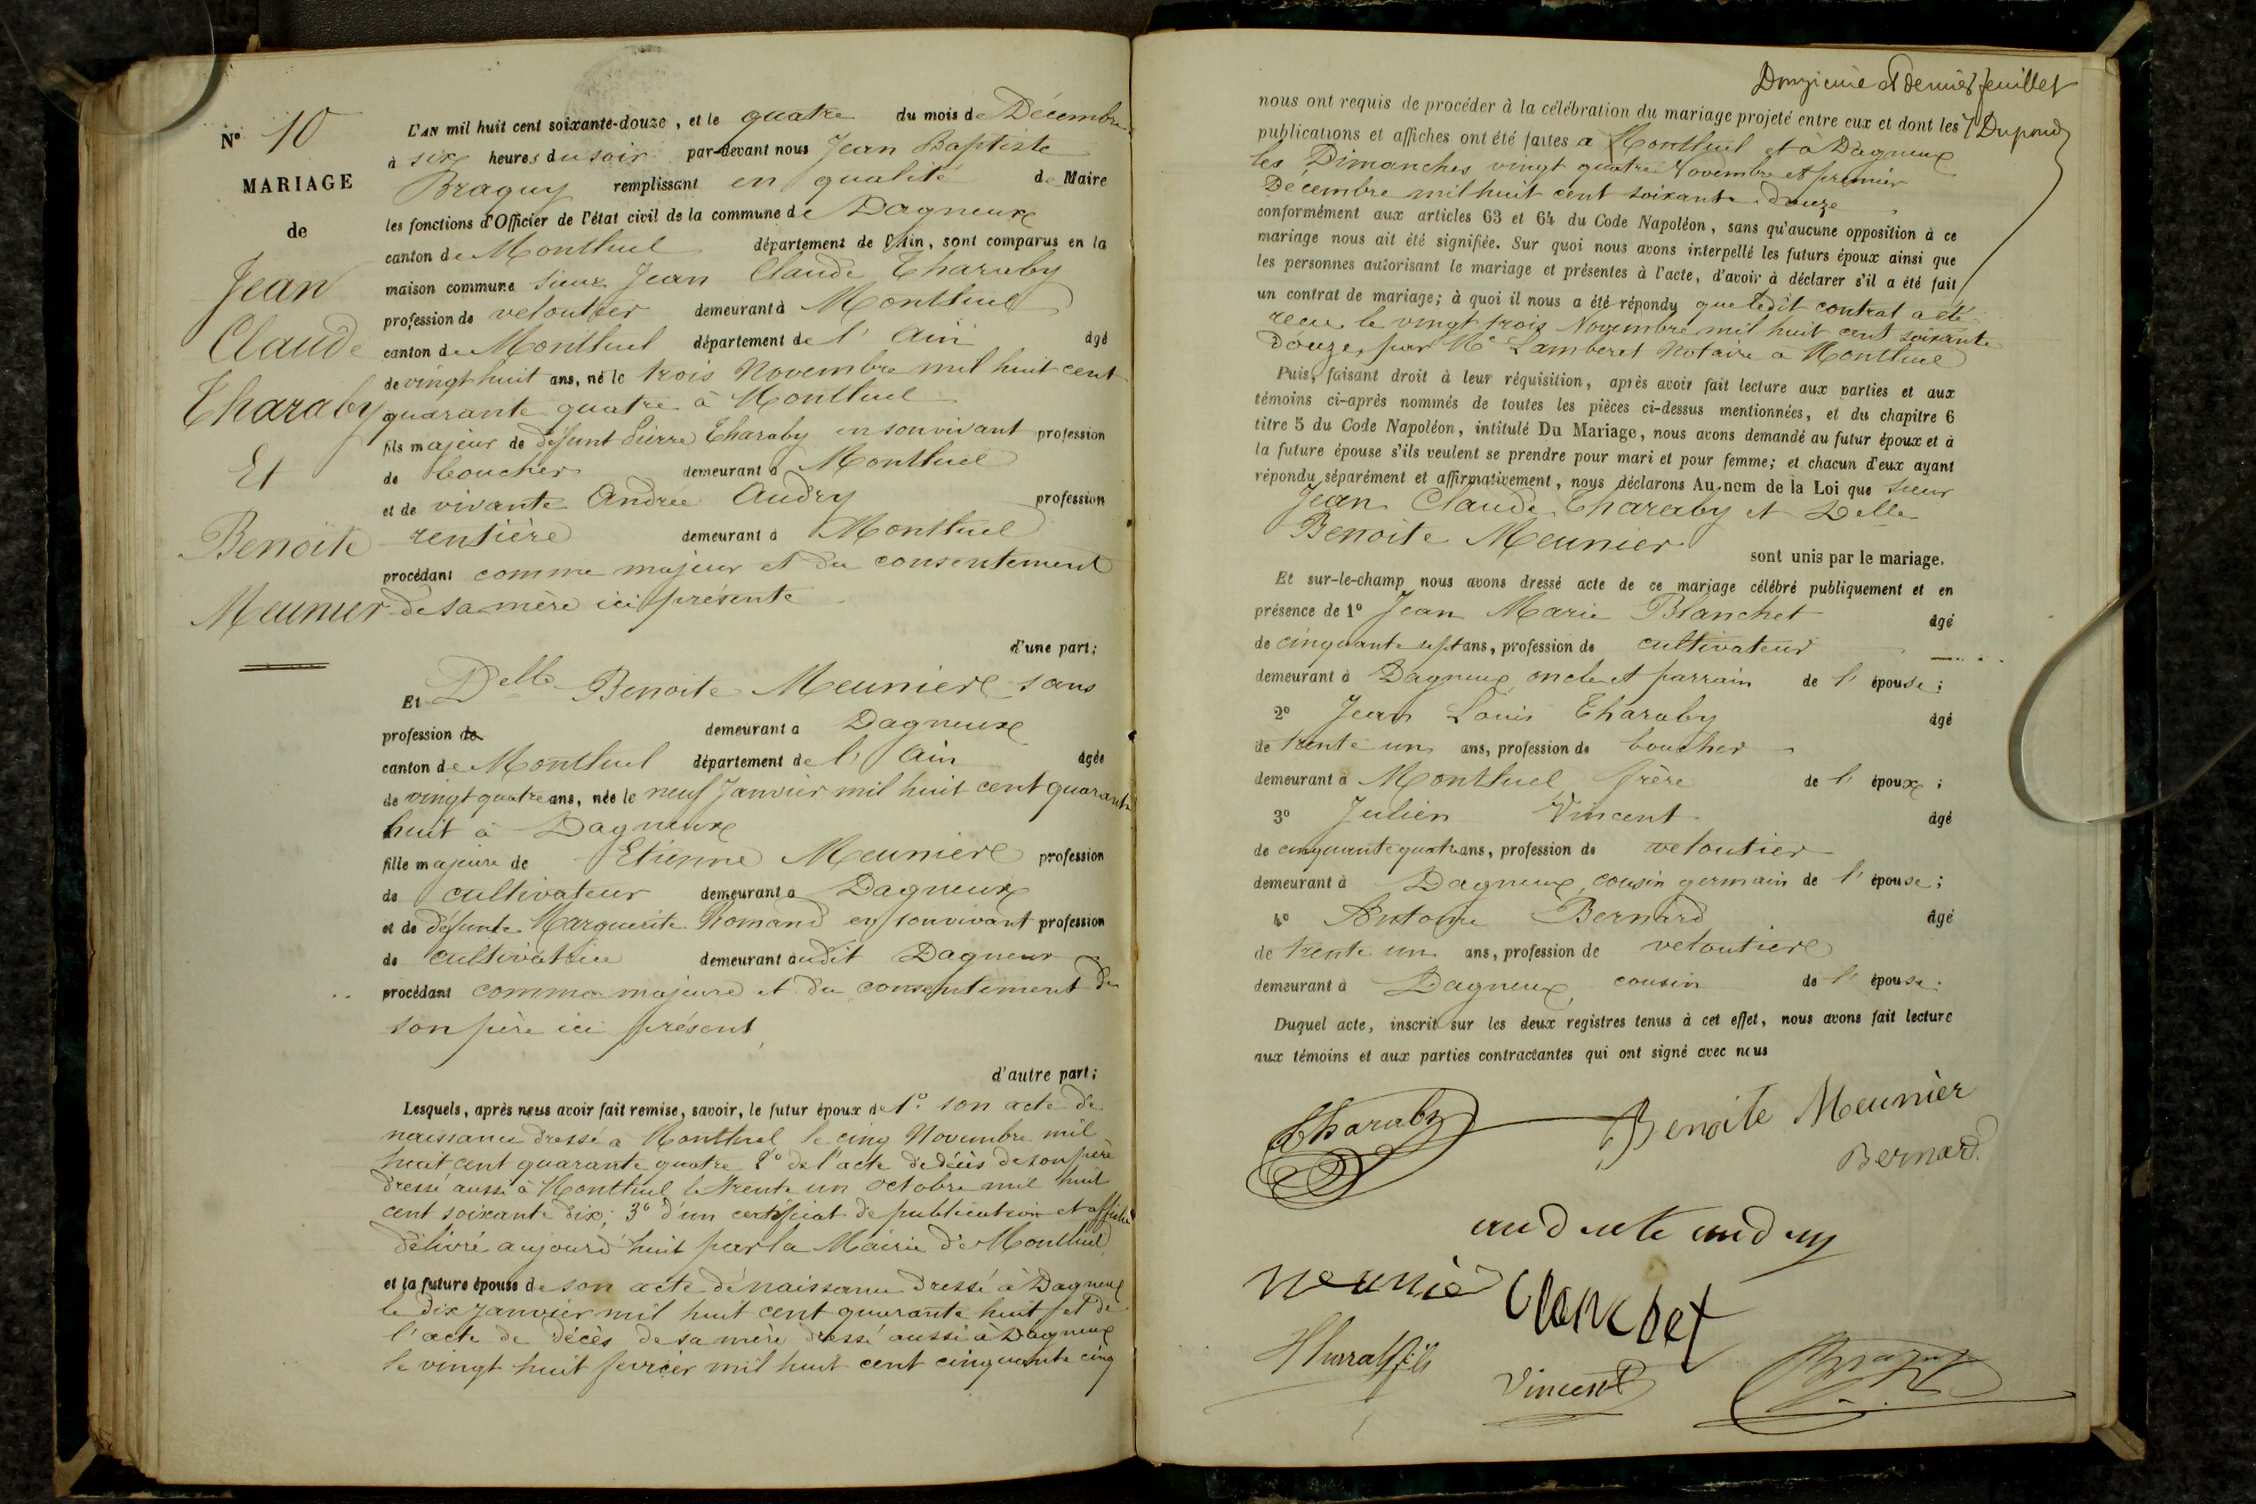 N° 10
MARIAGE
de
Jean
Claude
Tharaby
Et
Benoite
Meunier
L'AN mil huit cent soixante-douze, et le quatre du mois de Décembre
à six heures du soir par-devant nous Jean Baptiste
Braguy remplissant en qualité de Maire
les fonctions d'Officier de l'état civil de la commune de Dagneux
canton de Montluel département de l'Ain, sont comparus en la
maison commune sieur Jean Claude Tharaby
profession de veloutier demeurant à Montluel
canton de Montluel département de l'Ain âgé
de vingt huit ans, né le trois Novembre mil huit cent
quarante quatre à Montluel
fils majeur de défunt Pierre Tharaby en son vivant profession
de boucher demeurant à Montluel
et de vivante Andrée Audry profession
rentière demeurant à Montluel
procédant comme majeur et du consentement
de sa mère ici présente
d'une part;
Et Delle Benoite Meunier sans
profession de demeurant à Dagneux
canton de Montluel département de l'Ain âgée
de vingt quatre ans, née le neuf Janvier mil huit cent quarante
huit à Dagneux
fille majeure de Etienne Meunier profession
de cultivateur demeurant à Dagneux
et de défunte Marguerite Romand en son vivant profession
de cultivatrice demeurant audit Dagneux
procédant comme majeure et du consentement de
son père ici présent
d'autre part;
Lesquels, après nous avoir fait remise, savoir, le futur époux de 1° son acte de
naissance dressé à Montluel le cinq Novembre mil
huit cent quarante quatre 2° de l'acte de décès de son père
dressé aussi à Montluel le trente un octobre mil huit
cent soixante dix; 3° d'un certificat de publication et affiche
délivré aujourd'huit par la Mairie de Montluel
et la future épouse de son acte de naissance dressé à Dagneux
le dix Janvier mil huit cent quarante huit et de
l'acte de décès de sa mère dressé aussi à Dagneux
le vingt huit fevrier mil huit cent cinquante cinq
Douzième et dernier feuillet
Dupond
nous ont requis de procéder à la célébration du mariage projeté entre eux et dont les
publications et affiches ont été faites à Montluel et à Dagneux
les Dimanches vingt quatre Novembre et premier
Décembre mil huit cent soixante douze
conformément aux articles 63 et 64 du Code Napoléon, sans qu'aucune opposition à ce
mariage nous ait été signifiée. Sur quoi nous avons interpellé les futurs époux ainsi que
les personnes autorisant le mariage et présentes à l'acte, d'avoir à déclarer s'il a été fait
un contrat de mariage; à quoi il nous a été répondu que ledit contrat a été
reçu le vingt trois Novembre mil huit cent soixante
douze, par Me Lamberet Notaire à Montluel
Puis, faisant droit à leur réquisition, après avoir fait lecture aux parties et aux
témoins ci-après nommés de toutes les pièces ci-dessus mentionnées, et du chapitre 6
titre 5 du Code Napoléon, intitulé Du Mariage, nous avons demandé au futur époux et à
la future épouse s'ils veulent se prendre pour mari et pour femme; et chacun d'eux ayant
répondu séparément et affirmativement, nous déclarons Au nom de la Loi que sieur
Jean Claude Tharaby et Delle
Benoite Meunier
sont unis par le mariage.
Et sur-le-champ nous avons dressé acte de ce mariage célébré publiquement et en
présence de 1° Jean Marie Blanchet âgé
de cinquante sept ans, profession de cultivateur
demeurant à Dagneux, oncle et parrain de l'épouse;
2° Jean Louis Tharaby âgé
de trente un ans, profession de boucher
demeurant à Montluel frère de l'époux;
3° Julien Vincent âgé
de cinquante quatre ans, profession de veloutier
demeurant à Dagneux, cousin germain de l'épouse;
4° Antoine Bernard âgé
de trente un ans, profession de veloutier
demeurant à Dagneux, cousin de l'épouse.
Duquel acte, inscrit sur les deux registres tenus à cet effet, nous avons fait lecture
aux témoins et aux parties contractantes qui ont signé avec nous
Tharaby
Benoite Meunier
Bernard
Meunier
Blanchet
Vincent
Braguy